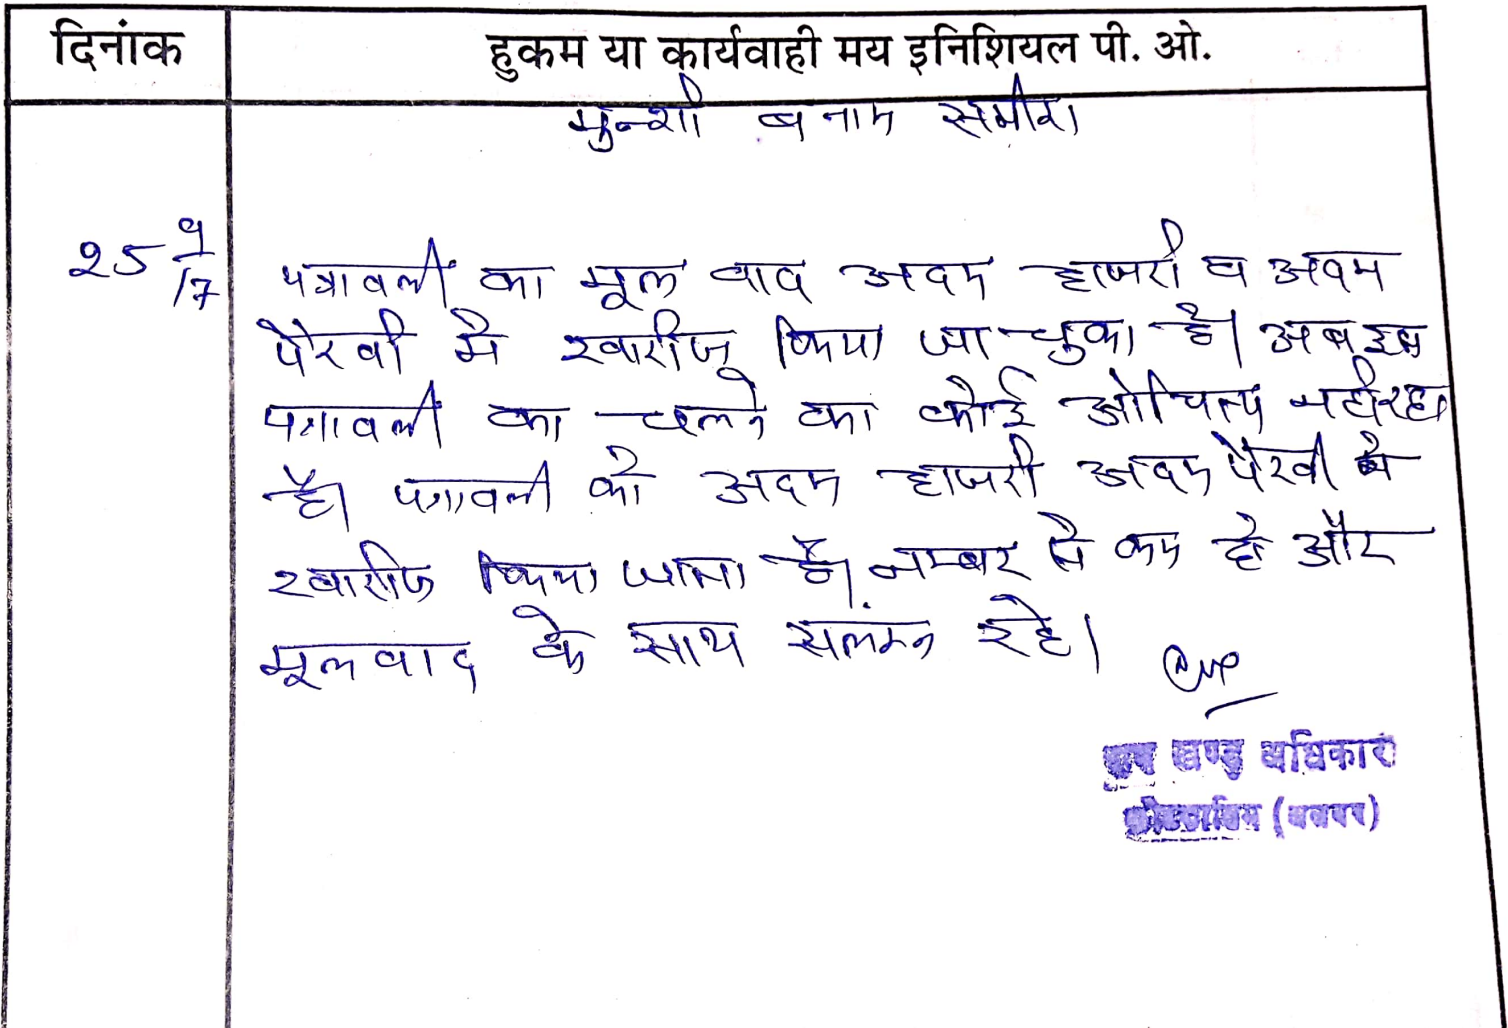 दिनांक
हुकम या कार्यवाही मय इनिशियल पी. ओ.
मुन्शी बनाम समीरा
25 9/17
पत्रावली का मूल वाद अदम हाजरी व अदम
पैरवी मे खारीज किया जा चुका है। अब इस
पत्रावली का चलने का कोई ओचित्य नहीं रहा
है। पत्रावली को अदम हाजरी अदम पैरवी मे
खारीज किया जाता है। नम्बर से कम हो और
मूल वाद के साथ सलंग्न रहे।
उप खण्ड अधिकारी
(अलवर)